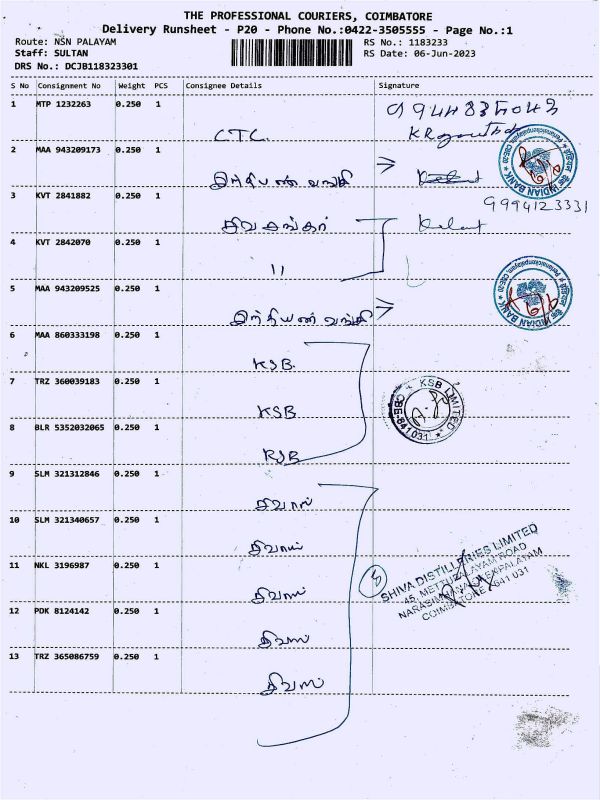 THE PROFESSIONAL COURIERS, COIMBATORE
Delivery Runsheet - P20 - Phone No.:0422-3505555 - Page No.:1
Route: NSN PALAYAM
RS No.: 1183233
Staff: SULTAN
RS Date: 06-Jun-2023
DRS No.: DCJB118323301
S No Consignment No Weight PCS Consignee Details Signature
1 MTP 1232263 0.250 1
CTC.
2 MAA 943209173 0.250 1
இந்தியன் வங்கி
3 KVT 2841882 0.250 1
9994123331
சிவசங்கர்
4 KVT 2842070 0.250 1
11
5 MAA 943209525 0.250 1
இந்தியன் வங்கி
6 MAA 860333198 0.250 1
KSB.
7 TRZ 360039183 0.250 1
KSB
8 BLR 5352032065 0.250 1
KSB
KSB LIMITED
CBE-641 031
9 SLM 321312846 0.250 1
சிவாஸ்
10 SLM 321340657 0.250 1
சிவாஸ்
11 NKL 3196987 0.250 1
சிவாஸ்
12 PDK 8124142 0.250 1
சிவாஸ்
13 TRZ 365086759 0.250 1
சிவாஸ்
5
SHIVA DISTILLERIES LIMITED
45, METTUPALAYAM ROAD
COIMBATORE - 641 031
INDIAN BANK
INDIAN BANK